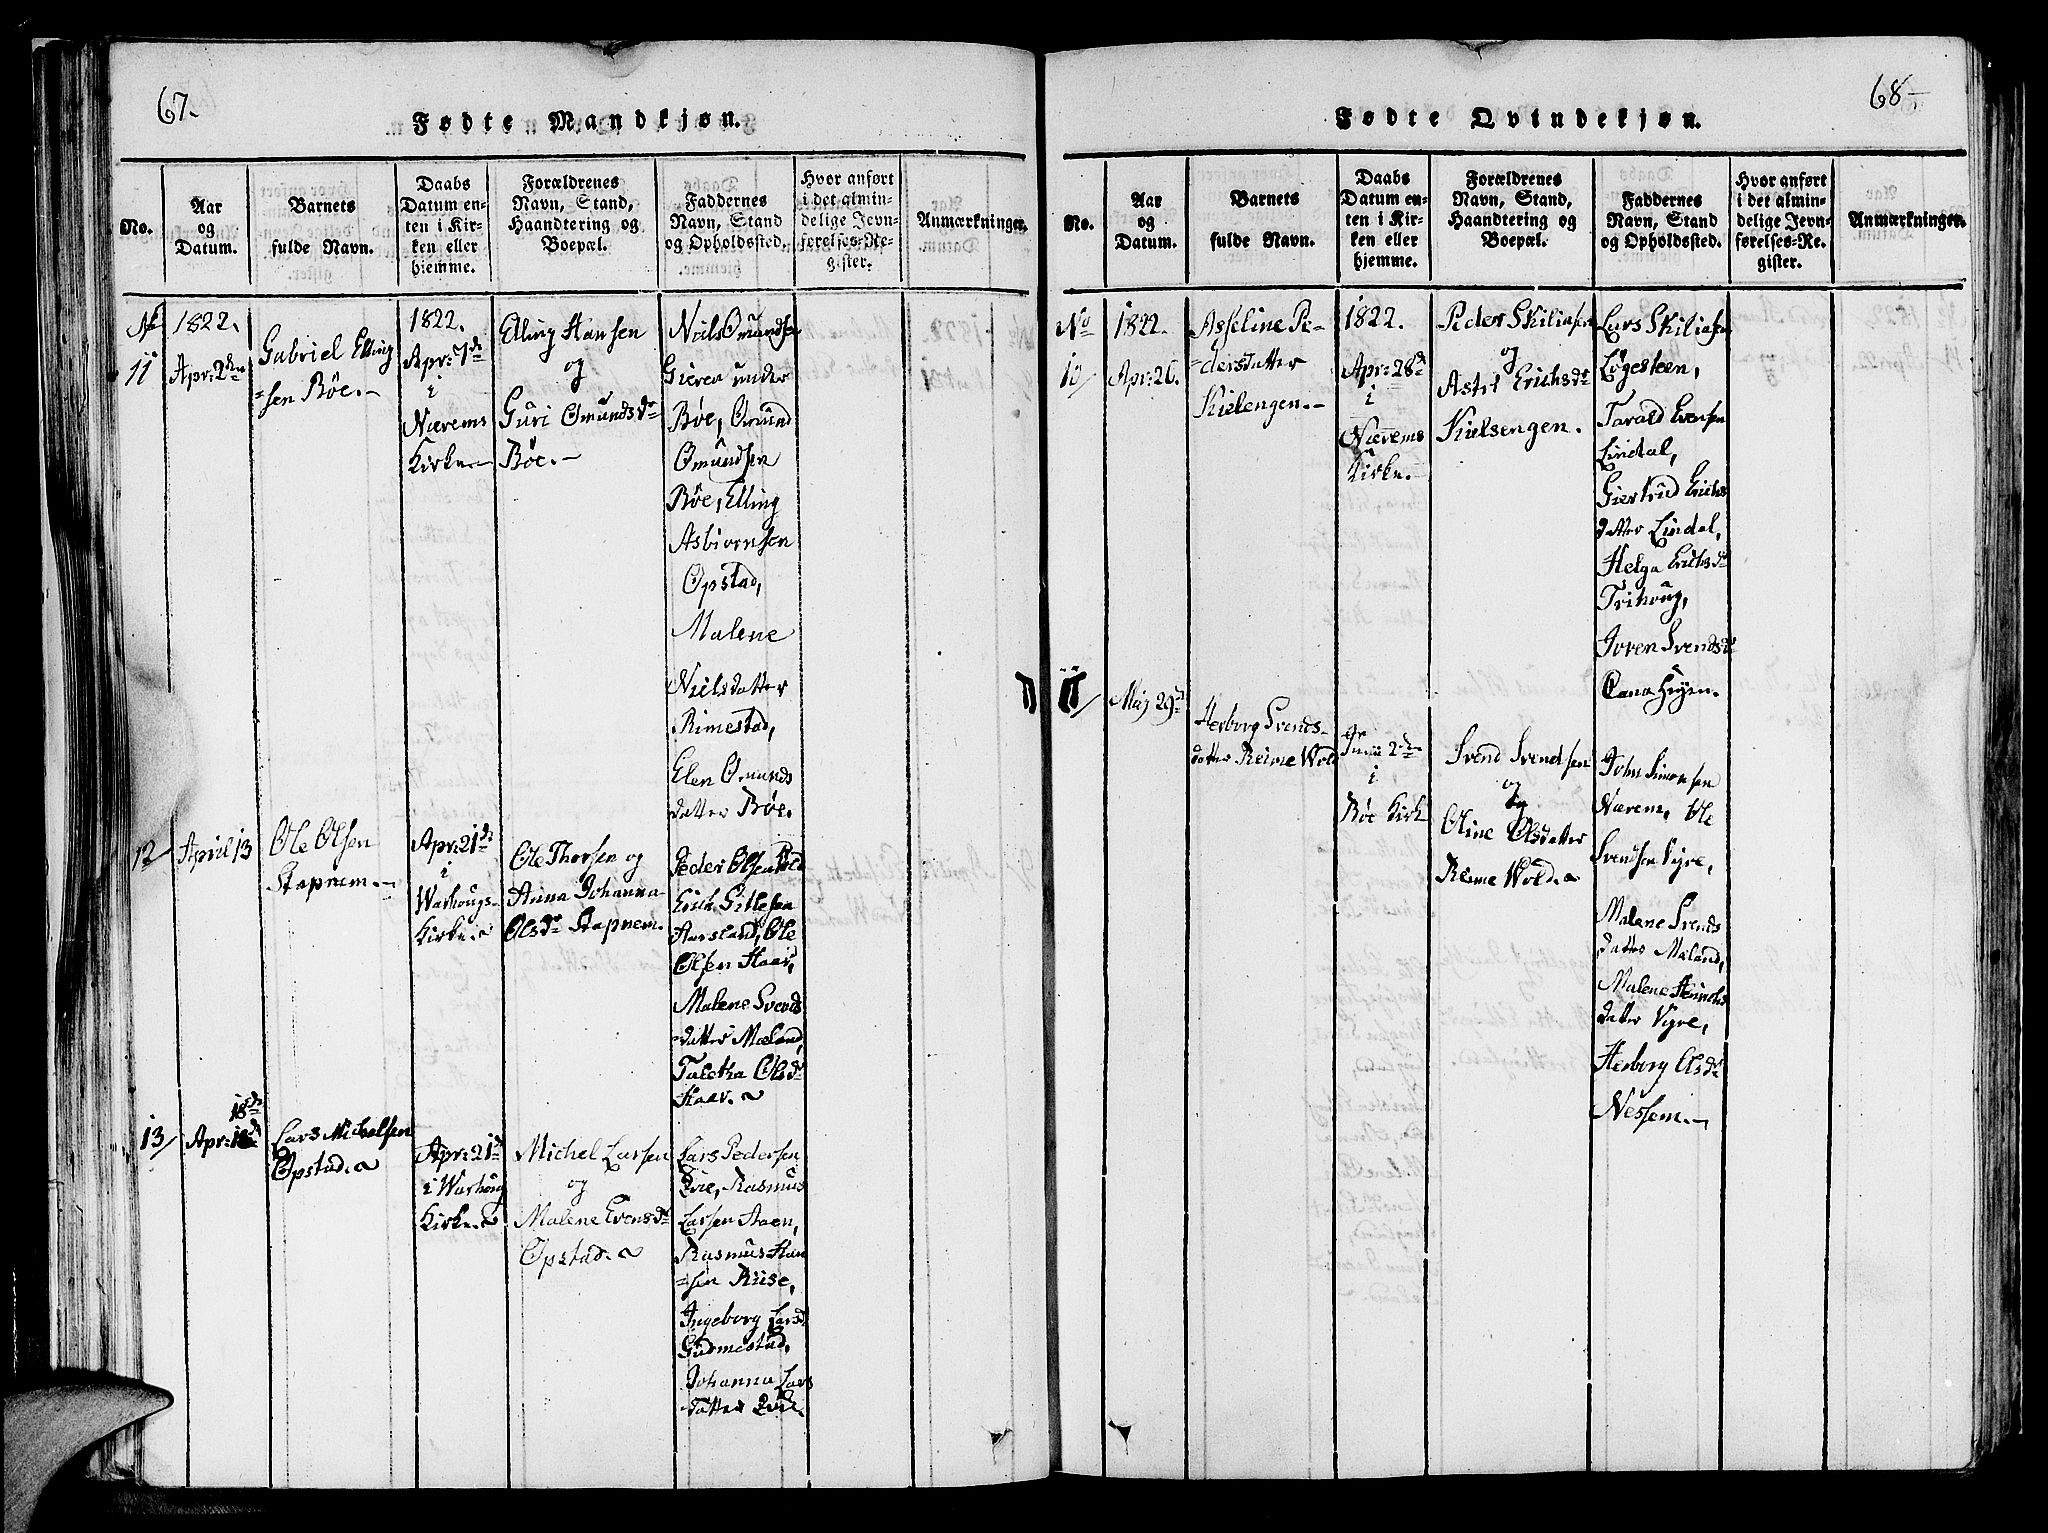 67.
Fødte Mandkjøn.
No.
Aar
og
Datum.
Barnets
fulde Navn.
Daabs
Datum en-
ten i Kir-
ken eller
hjemme.
Forældrenes
Navn, Stand,
Haandtering og
Boepæl.
Faddernes
Navn, Stand
og Opholdssted.
Hvor anført
i det almin-
delige Jevn-
førelses-Re-
gister.
Anmærkninger.
No
11
1822.
Apr: 2den
Gabriel Elling
=sen Bøe.
1822.
Apr: 7de
i
Nærems
Kirke.
Elling Hansen
og
Guri Omundsdr
Bøe.
Niels Omundsen
Gieren under
Bøe, Omund
Omundsen
Bøe, Elling
Asbiørnsen
Opstad,
Malene
Nielsdatter
Rimestad,
Elen Omunds
datter Bøe.
12
April 13
Ole Olsen
Stapnem.
Apr: 21de
i
Warhougs-
Kirke.
Ole Thorsen og
Anna Johanna
Olsdr Stapnem.
Peder Olsen Wold
Erich Gitlesen
Aarsland, Ole
Olsen Haar,
Malene Svends
datter Mæland,
Taletha Olsdr
Haar.
13/
18de
Apr: 18de
Lars Michelsen
Opstad.
Apr: 21de
i Warhoug
Kirke.
Michel Larsen
og
Malene Evensdr
Opstad.
Lars Pedersen
Qvie, Rasmus
Larsen Aaen,
Rasmus Han
=sen Riise,
Ingeborg Larsd
Gudmestad,
Johanna Lars
datter Qvie.
68
Fødte Qvindekjøn.
No.
Aar
og
Datum.
Barnets
fulde Navn.
Daabs
Datum en-
ten i Kir-
ken eller
hjemme.
Forældrenes
Navn, Stand,
Haandtering og
Boepæl.
Faddernes
Navn, Stand
og Opholdssted.
Hvor anført
i det almin-
delige Jevn-
førelses-Re.
gister.
Anmærkninger.
No
10/
1822.
Apr: 26.
Asseline Pe-
=dersdatter
Kielengen.
1822.
Apr: 28de
i
Nærems
Kirke.
Peder Skiliasen
og
Astri Erichsdr
Kielsengen.
Lars Skiliasen
Løgesteen,
Tarald Evensen
Lindal,
Giertrud Erichs
datter Lindal,
Helga Erichsdr
Trihoug,
Joren Svendsdr
11/
Maj 29de
Herborg Svends-
datter Reime Wold
Junii 2den
i
Bøe Kirk
Svend Svendsen
og
Oline Olsdatter
Reime Wold.
John Simonsen
Nærem, Ole
Svendsen Vigre,
Malene Svends
datter Mæland,
Malene Heinrichs
datter Vigre,
Herborg Olsdr
Nessem.